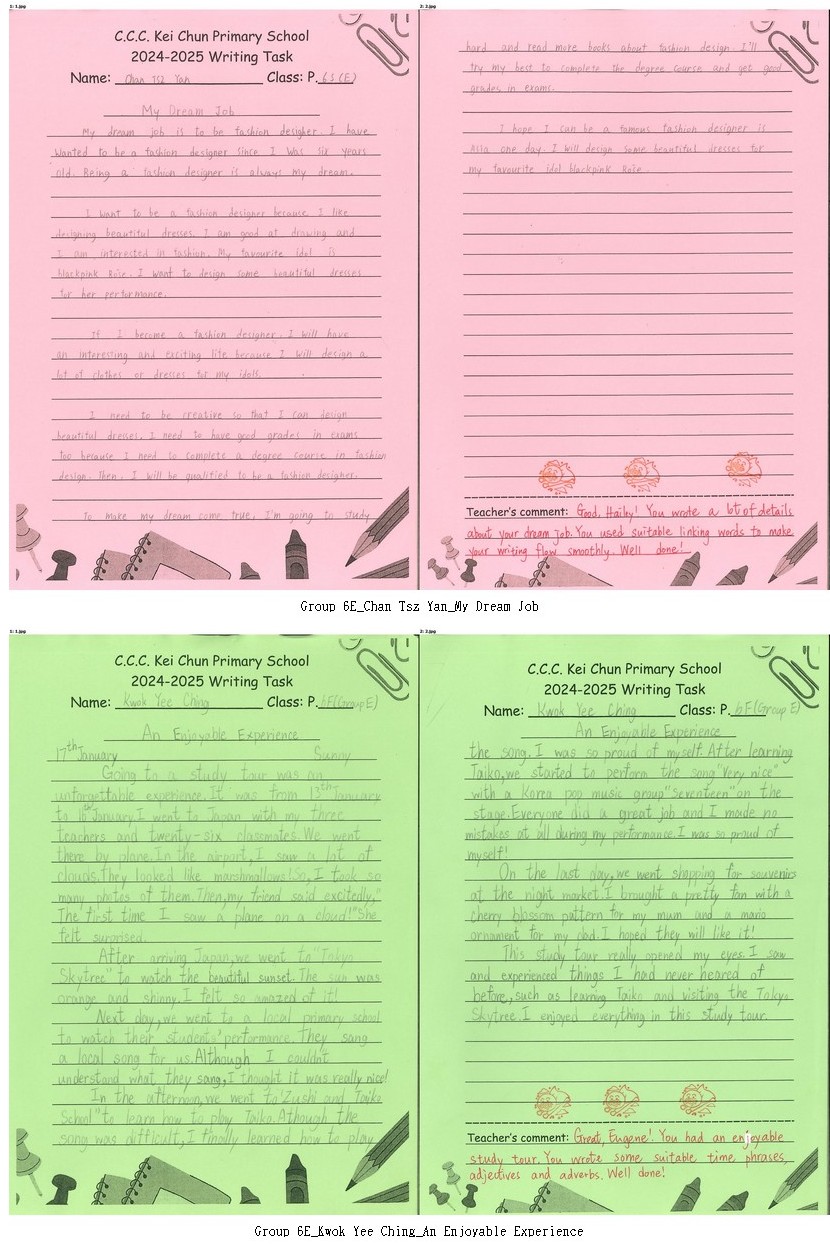 1: 1.jpg
C.C.C. Kei Chun Primary School
2024-2025 Writing Task
Name: Chan Tsz Yan Class: P. 6S (E)
My Dream Job
My dream job is to be fashion designer. I have
wanted to be a fashion designer since I was six years
old. Being a fashion designer is always my dream.
I want to be a fashion designer because I like
designing beautiful dresses. I am good at drawing and
I am interested in fashion. My favourite idol is
blackpink Rose. I want to design some beautiful dresses
for her performance.
If I become a fashion designer, I will have
an interesting and exciting life because I will design a
lot of clothes or dresses for my idols.
I need to be creative so that I can design
beautiful dresses. I need to have good grades in exams
too because I need to complete a degree course in fashion
design. Then, I will be qualified to be a fashion designer.
To make my dream come true, I'm going to study
2: 2.jpg
hard and read more books about fashion design. I'll
try my best to complete the degree course and get good
grades in exams.
I hope I can be a famous fashion designer is
Asia one day. I will design some beautiful dresses for
my favourite idol blackpink Rose.
Teacher's comment: Good, Hailey! You wrote a lot of details
about your dream job. You used suitable linking words to make
your writing flow smoothly. Well done!
Group 6E_Chan Tsz Yan_My Dream Job
1: 1.jpg
C.C.C. Kei Chun Primary School
2024-2025 Writing Task
Name: Kwok Yee Ching Class: P. 6F(Group E)
An Enjoyable Experience
17th January Sunny
Going to a study tour was an
unforgettable experience. It was from 13th January
to 16th January. I went to Japan with my three
teachers and twenty-six classmates. We went
there by plane. In the airport, I saw a lot of
clouds. They looked like marshmallows! So, I took so
many photos of them. Then, my friend said excitedly, "
The first time I saw a plane on a cloud!" She
felt surprised.
After arriving Japan, we went to "Tokyo
Skytree" to watch the beautiful sunset. The sun was
orange and shinny. I felt so amazed of it!
Next day, we went to a local primary school
to watch their students' performance. They sang
a local song for us. Although I couldn't
understand what they sang, I thought it was really nice!
In the afternoon, we went to "Zushi and Taiko
School" to learn how to play Taiko. Athough the
song was difficult, I finally learned how to play
2: 2.jpg
C.C.C. Kei Chun Primary School
2024-2025 Writing Task
Name: Kwok Yee Ching Class: P. 6F(Group E)
An Enjoyable Experience
the song. I was so proud of myself. After learning
Taiko, we started to perform the song "Very nice"
with a Korea pop music group "Seventeen" on the
stage. Everyone did a great job and I made no
mistakes at all during my performance. I was so proud of
myself!
On the last day, we went shopping for souvenirs
at the night market. I brought a pretty fan with a
cherry blossom pattern for my mum and a mario
ornament for my dad. I hoped they will like it!
This study tour really opened my eyes. I saw
and experienced things I had never heared of
before, such as learning Taiko and visiting the Tokyo
Skytree. I enjoyed everything in this study tour.
Teacher's comment: Great, Eugene! You had an enjoyable
study tour. You wrote some suitable time phrases,
adjectives and adverbs. Well done!
Group 6E_Kwok Yee Ching_An Enjoyable Experience